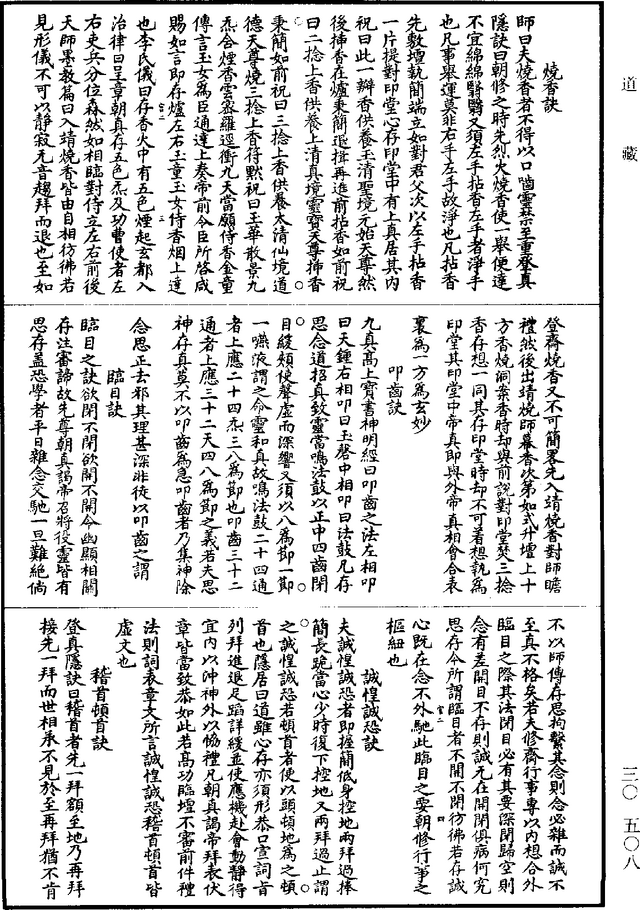 道藏
三〇　五〇八
燒香訣
師曰夫燒香者不得以口嚙靈禁至重登真
隱訣曰朝修之時先烈火燒香使一舉便達
不宜綿綿翳翳又須左手拈香左手者淨手
也凡事舉運莫非右手左手故淨也凡拈香
先敷壇執簡端立如對君父次以左手拈香
一片提對印堂心存印堂中有上真居其內
祝曰此一瓣香供養玉清聖境元始天尊然
後插香在爐秉簡退揖再進前拈香如前祝
曰二捻上香供養上清真境靈寶天尊插香
秉簡如前祝曰三捻上香供養太清仙境道
德天尊燒三捻上香待默祝曰玉華散景九
炁合煙香雲密羅逕衝九天當願侍香金童
傳言玉女為臣通達上奏帝前令臣所啓咸
賜如言即存爐左右玉童玉女侍香烟上達
也李氏儀曰存香火中有五色煙起玄都入
治律曰呈章朝真存五色炁及功曹使者左
右吏兵分位森然如相臨對侍立左右前後
天師墨教為曰入靖燒香皆由自相彷彿若
見形儀不可以靜寂无音趨拜而退也至如
登齋燒香又不可簡畧先入靖燒香對師瞻
禮然後出靖燒師幕香次第如式升壇上十
方香燒洞案香時却與前說對印堂焚三捻
香存想一同其存印堂時却不可着想執為
印堂其印堂中帝真即與外帝真相會合表
裏為一方為玄妙
叩齒訣
九真高上寶書神明經曰叩齒之法左相叩
曰天鍾右相叩曰玉磬中相叩曰法鼓凡存
思念道招真致靈當鳴法鼓以正中四齒閉
目緩頰使聲虛而深響又須以八為節一節
一嚥液謂之命靈和真故鳴法鼓二十四通
者上應二十四炁三八為節也叩齒三十二
通者上應三十二天四八為節之義若夫思
神存真莫不以叩齒為急叩齒者乃集神除
念思正去邪其理甚深非徒以叩齒之謂
臨目訣
臨目之訣欲閉不閉欲開不開令幽顯相關
存注審諦故先尊朝真謁帝召將役靈皆有
思存蓋恐學者平日雜念交馳一旦難絕倘
不以師傳存思拘繫其念則念必雜而誠不
至真不格矣若夫修齋行事專以內想合外
臨目之際其法閉目必有其要深閉歸空則
念有差開目不存則誠无在開閉俱病何究
思存今所謂臨目者不開不閉彷彿若存誠
心既在念不外馳此臨目之要朝修行事之
樞紐也
誠惶誠恐訣
夫誠惶誠恐者即握簡低身控地兩拜過捧
簡長跪當心少時復下控地又兩拜過止謂
之誠惶誠恐若頓首者使以頭頓地為之頓
首也隱居曰道雖心存亦須形恭口宣詞旨
列拜進退足蹈詳緩並使應機赴會動靜得
宜內以沖神外以恊禮凡朝真謁帝拜表伏
章皆當致恭如此若髙功臨壇不審前件種
法則詞表章文所言誠惶誠恐稽首頓首皆
虛文也
稽首頓首訣
登真隱訣曰稽首者先一拜額至地乃再拜
接先一拜而世相承不見於至再拜猶不肯